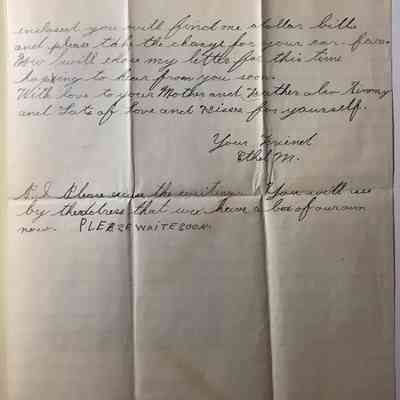 enclosed you will find one dollar bill
and please take the change for your car-fare.
Now I will close my letter for this time
hoping to hear from you soon.
With love to your Mother and Father also Jimmy
and Lots of Love and Kisses for yourself.
Your Friend
Ethel M.
Please excuse the writing. You will see
by the address that we have a box of our own
now. PLEASE WAITE SOON.